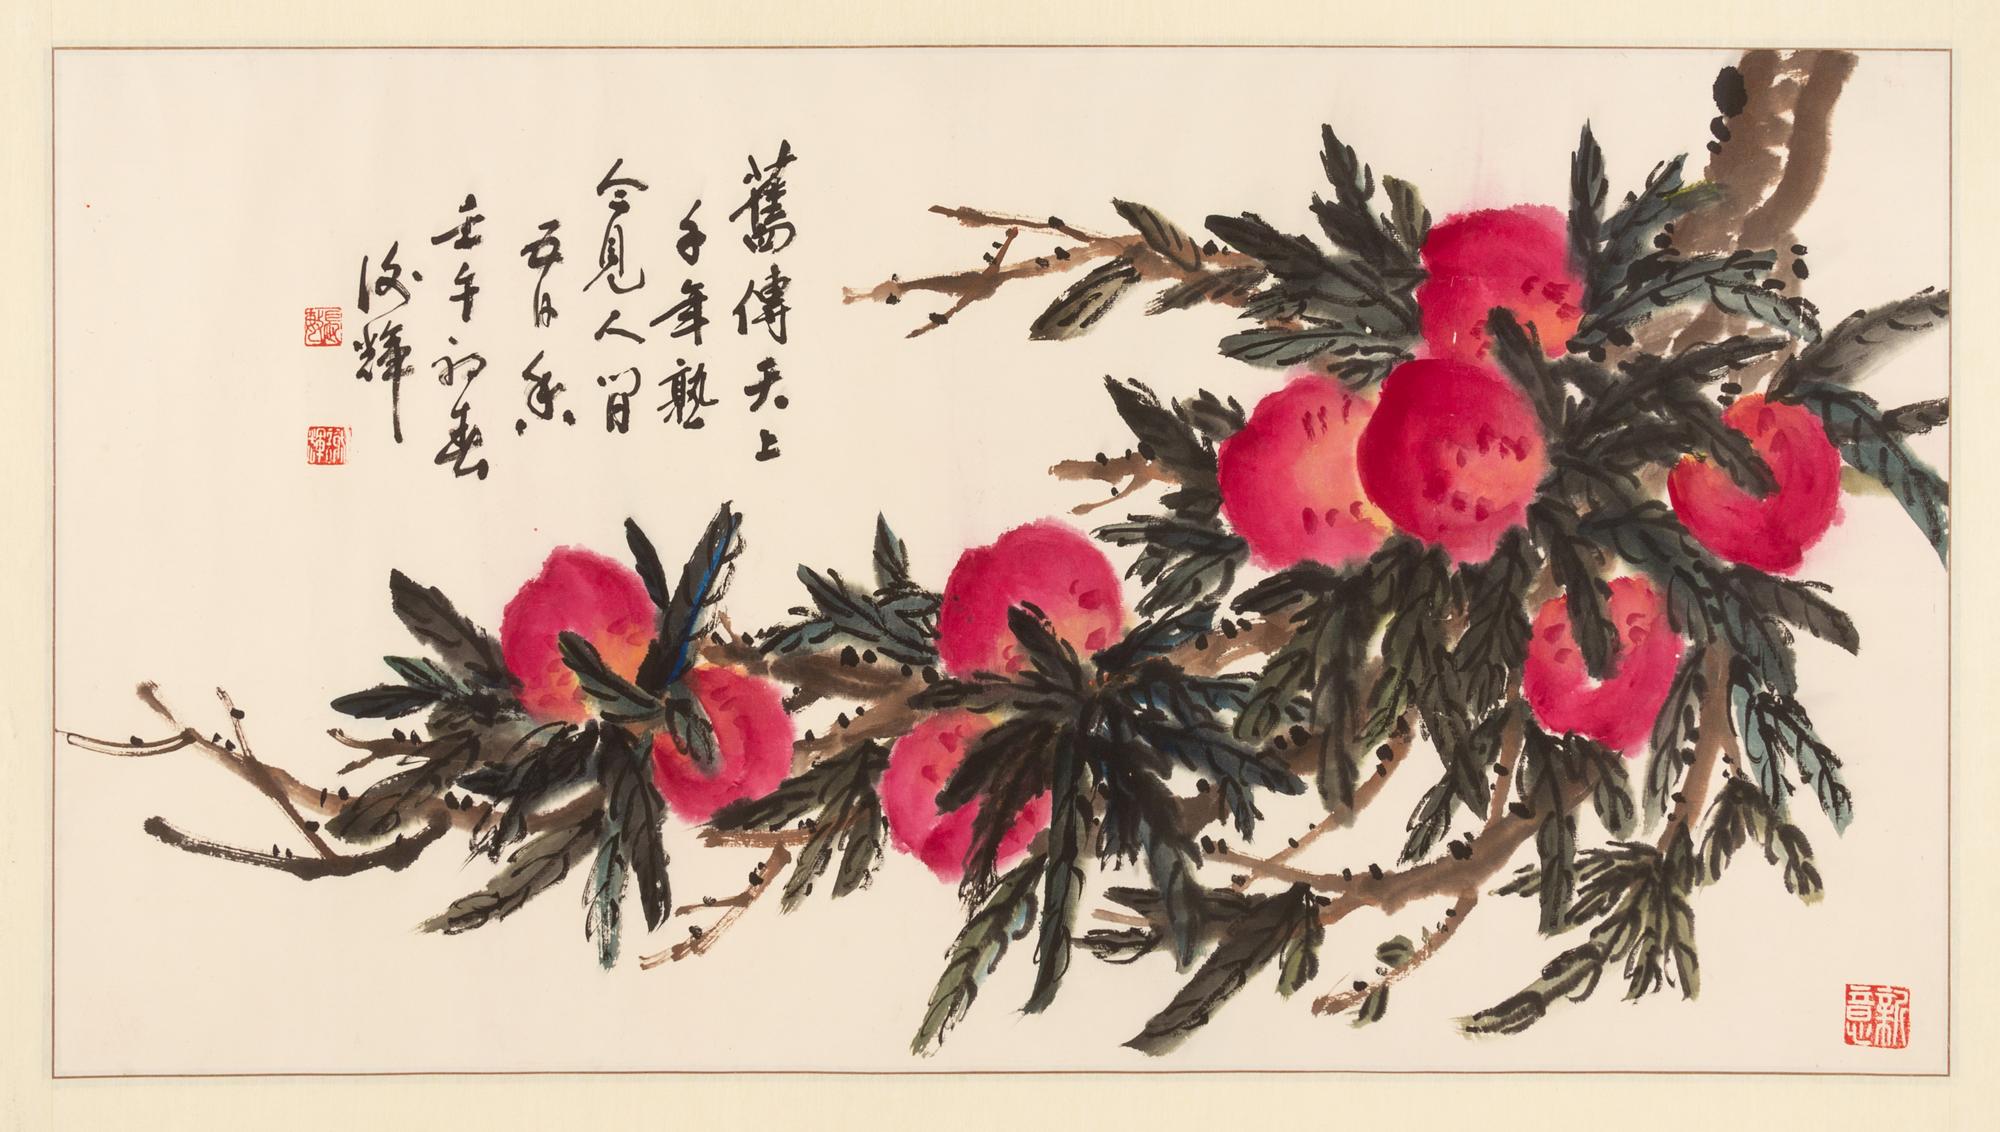 舊傳天上
千年熟
今見人間
五日香
壬午初春
後輝
新意